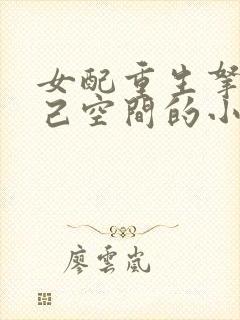 女配重生拏
己空間的小
廖雲嵐